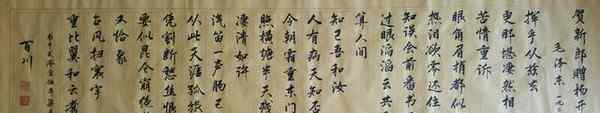 贺新郎赠杨开
毛泽东一九二
挥手从兹去
更那堪凄然相
苦情重诉
眼角眉梢都似
热泪欲零还住
知误会前番书
过眼滔滔云共
算人间
知己吾和汝
人有病天知否
今朝霜重东门
照横塘半天残
凄清如许
汽笛一声肠已
从此天涯孤旅
凭割断愁丝恨
要似昆仑崩绝
又恰象
台风扫寰宇
重比翼和云翥
百川